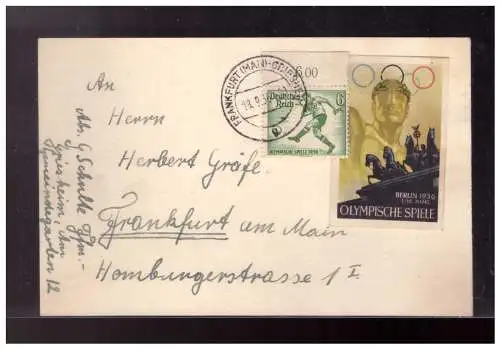 An
Herrn
Herbert Gräfe.
Frankfurt am Main
Homburgerstrasse 1 I
Abs. G Schulte Ffm.-
Griesheim, Am
Gemeindegarten 12
FRANKFURT (MAIN)-GRIESHEIM
6.00
Deutsches
Reich
6
OLYMPISCHE SPIELE 1936
BERLIN 1936
OLYMPISCHE SPIELE